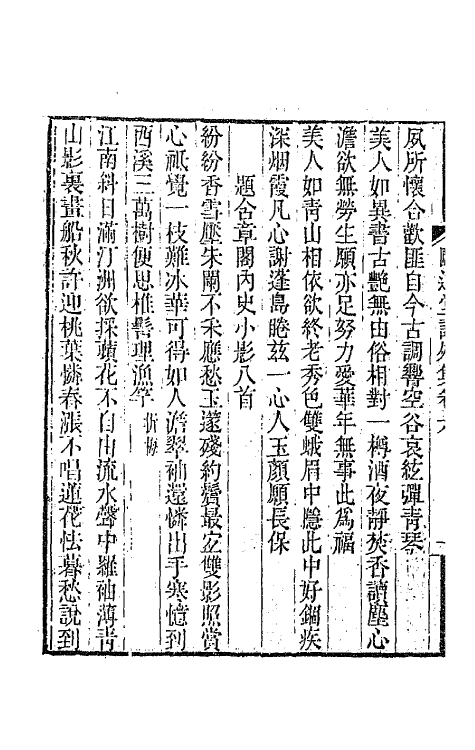 夙所懷合歡匪自今古調響空谷哀絃彈青琴
美人如異書古艷無由俗相對一樽酒夜靜焚香讀塵心
澹欲無勞生願亦足努力愛華年無事此爲福
美人如青山相依欲終老秀色雙蛾眉中隱此中好錮疾
深烟霞凡心謝蓬島睠玆一心人玉顏願長保
題含章閣內史小影八首
紛紛香雪壓朱闌不禾應愁玉邃殘約鬢最宐雙影照賞
心祇覺一枝難冰華可得如人澹翠袖還憐出手寒憶到
西溪三萬樹便思椎髻理漁竿折梅
江南斜日滿汀洲欲採蘋花不自由流水聲中羅袖薄靑
山影裏畫船秋許迎桃葉憐春漲不唱蓮花怯暮愁說到